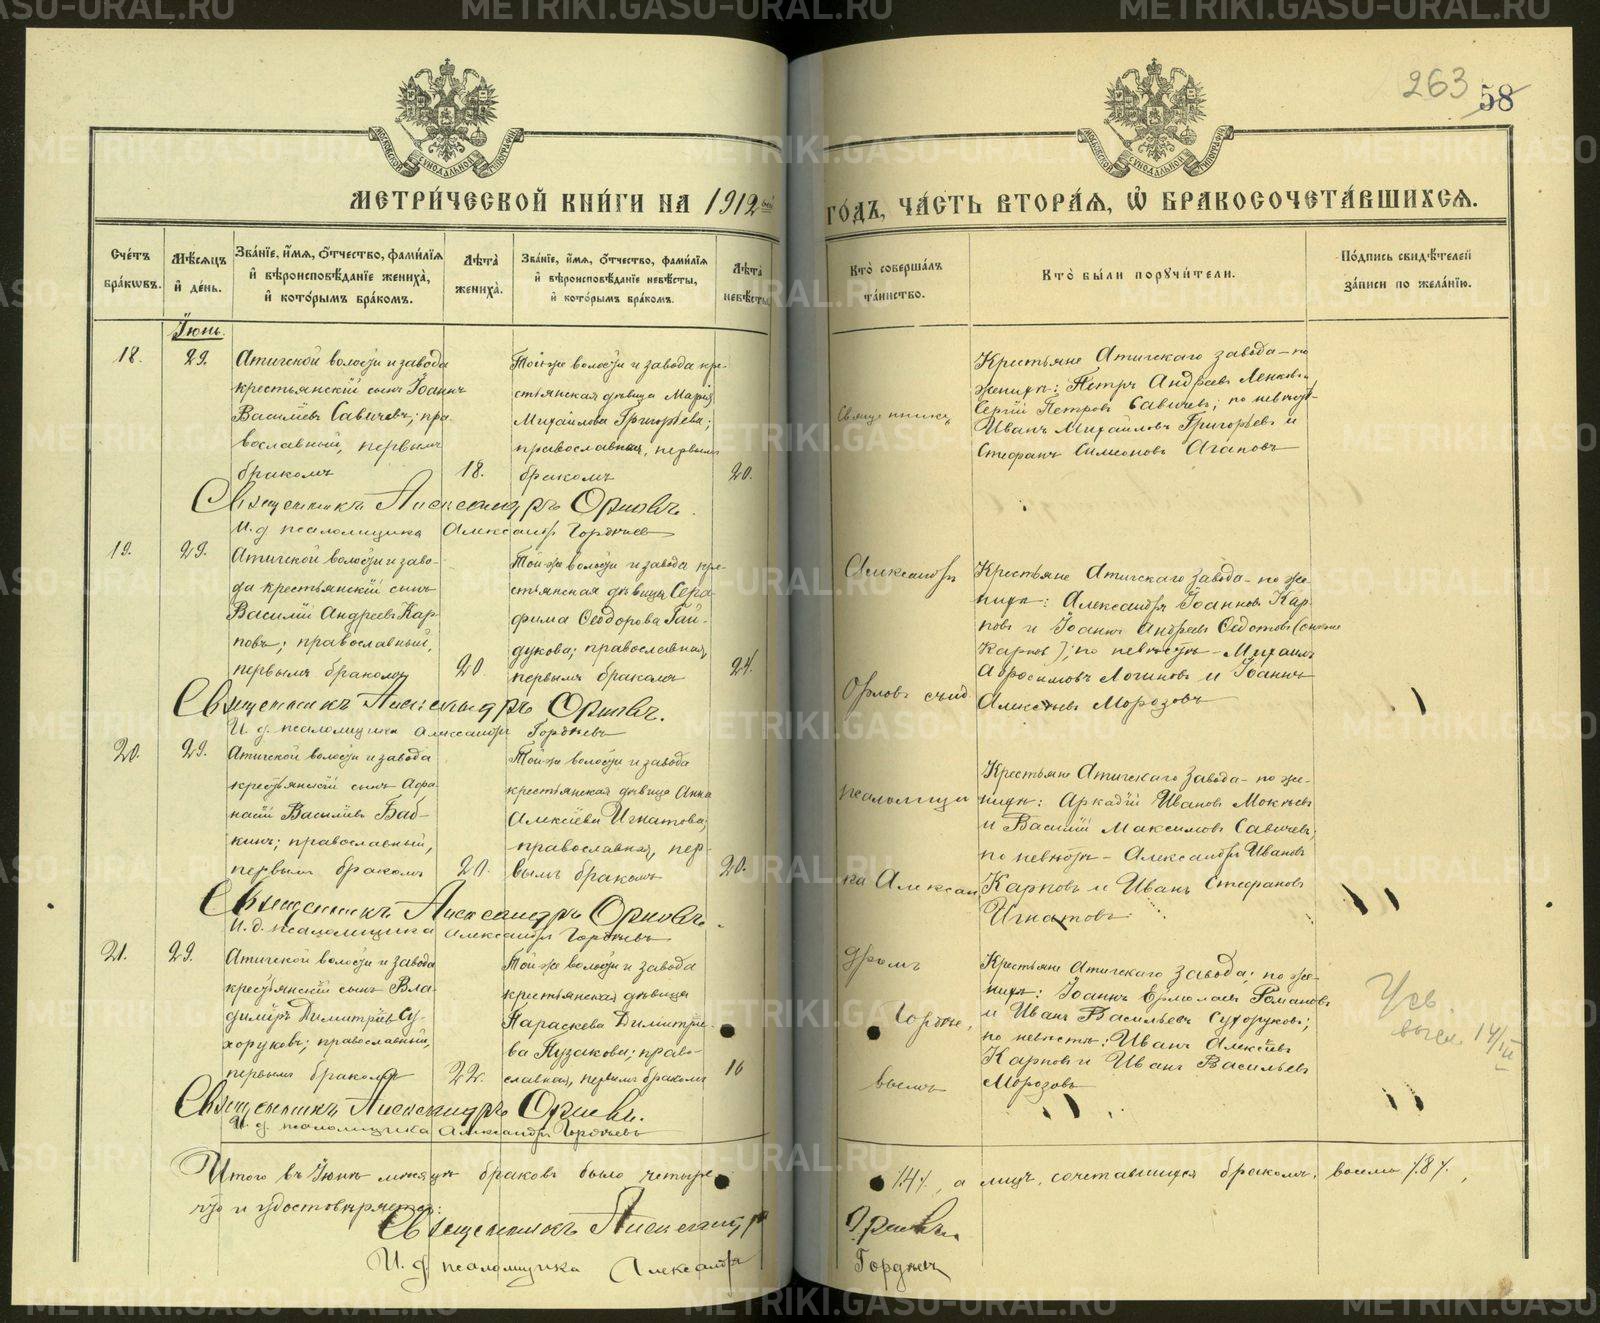 263
58
МОСКОВСКОЙ СУНОДАЛЬНОЙ ТИПОГРАФІИ
МОСКОВСКОЙ СУНОДАЛЬНОЙ ТИПОГРАФІИ
МЕТРИ́ЧЕСКОЙ КНИ́ГИ НА 1912
ГО́ДЪ, ЧА́СТЬ ВТОРА́Я, Ѡ БРАКОСОЧЕТА́ВШИХСЯ.
Сче́тъ бра́кѡвъ.
Мѣ́сяцъ и де́нь.
Зва́ніе, и́мя, о́тчество, фами́лія и вѣроисповѣ́даніе жениха̀, и кото́рымъ бра́комъ.
Лѣта̀ жениха̀.
Зва́ніе, и́мя, о́тчество, фами́лія и вѣроисповѣ́даніе невѣ́сты, и кото́рымъ бра́комъ.
Лѣта̀ невѣ́сты
Кто̀ соверша́лъ та́инство.
Кто̀ бы́ли поручи́тели.
По́дпись свидѣ́телей за́писи по жела́нію.
Іюнь.
18.
29.
Атигской волости и завода
крестьянскій сынъ Іоаннъ
Василіевъ Савичевъ; пра-
вославный, первымъ
бракомъ
18.
Той же волости и завода кре-
стьянская дѣвица Марія
Михайлова Григорьева;
православная, первымъ
бракомъ
20.
Священникъ
Крестьяне Атигскаго завода – по
женихѣ: Петръ Андреевъ
Сергій Петровъ Савичевъ; по невѣстѣ
Иванъ Михайловъ Григорьевъ и
Стефанъ Симеоновъ Агаповъ
Священникъ Александръ Орловъ.
И. д. псаломщика Александръ Гордѣевъ
19.
29.
Атигской волости и заво-
да крестьянскій сынъ
Василій Андреевъ Кар-
повъ; православный,
первымъ бракомъ
20
Той же волости и завода кре-
стьянская дѣвица Сера-
фима Ѳеодорова Гай-
дукова; православная,
первымъ бракомъ
24.
Александръ
Орловъ съ и.д.
Крестьяне Атигскаго завода – по же-
нихѣ: Александръ Іоанновъ Кар-
повъ и Іоаннъ Андреевъ Ѳедотовъ (онъ же
Карповъ); по невѣстѣ – Михаилъ
Абросимовъ Логиновъ и Іоаннъ
Алексѣевъ Морозовъ
Священникъ Александръ Орловъ.
И. д. псаломщика Александръ Гордѣевъ
20.
29.
Атигской волости и завода
крестьянскій сынъ Аѳа-
насій Василіевъ Баб-
кинъ; православный,
первымъ бракомъ
20.
Той же волости и завода
крестьянская дѣвица Анна
Алексіева Игнатова;
православная, пер-
вымъ бракомъ
20.
псаломщи
ка Алексан
Крестьяне Атигскаго завода – по же-
нихѣ: Аркадій Ивановъ Мокѣевъ
и Василій Максимовъ Савичевъ;
по невѣстѣ – Александръ Ивановъ
Карповъ и Иванъ Стефановъ
Игнатовъ
Священникъ Александръ Орловъ.
И. д. псаломщика Александръ Гордѣевъ
21.
29.
Атигской волости и завода
крестьянскій сынъ Вла-
димиръ Димитріевъ Су-
хоруковъ; православный,
первымъ бракомъ
22.
Той же волости и завода
крестьянская дѣвица
Параскева Димитріе-
ва Пузакова; право-
славная, первымъ бракомъ
16
дромъ
Гордѣе
вымъ
Крестьяне Атигскаго завода; по же-
нихѣ: Іоаннъ Ермолаевъ Романовъ
и Иванъ Васильевъ Сухоруковъ;
по невѣстѣ: Иванъ Алексіевъ
Карповъ и Иванъ Васильевъ
Морозовъ
14/III
Священникъ Александръ Орловъ.
И. д. псаломщика Александръ Гордѣевъ
Итого въ Іюнѣ мѣсяцѣ браковъ было четыре
/4/, а лицъ, сочетавшихся бракомъ, восемь /8/,
что и удостовѣряется:
Священникъ Александръ
Орловъ.
И. д. псаломщика Александръ
Гордѣевъ
METRIKI.GASO-URAL.RU